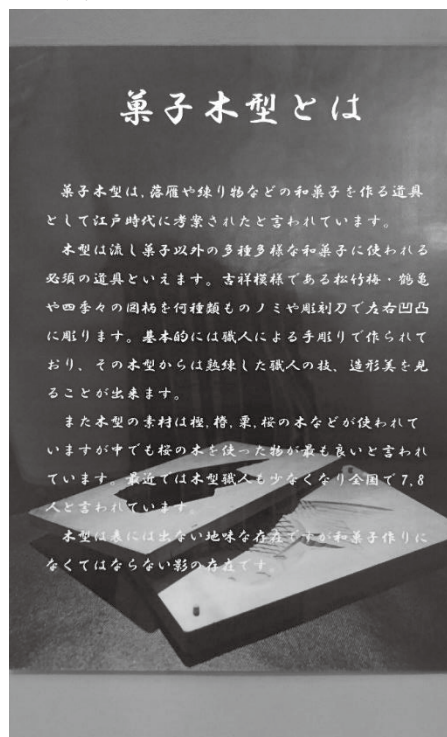 菓子木型とは
菓子木型は、落雁や煉り物などの和菓子を作る道具
として江戸時代に考案されたと言われています。
木型は流し菓子以外の多種多様な和菓子に使われる
必須の道具といえます。吉祥模様である松竹梅・鶴亀
や四季々の図柄を何種類ものノミや彫刻刀で左右凹凸
に彫ります。基本的には職人による手彫りで作られて
おり、その木型からは熟練した職人の技、造形美を見
ることが出来ます。
また木型の素材は樫,椿,栗,桜の木などが使われて
いますが中でも桜の木を使った物が最も良いと言われ
ています。最近では木型職人も少なくなり全国で7,8
人と言われています。
木型は表には出ない地味な存在ですが和菓子作りに
なくてはならない影の存在です。